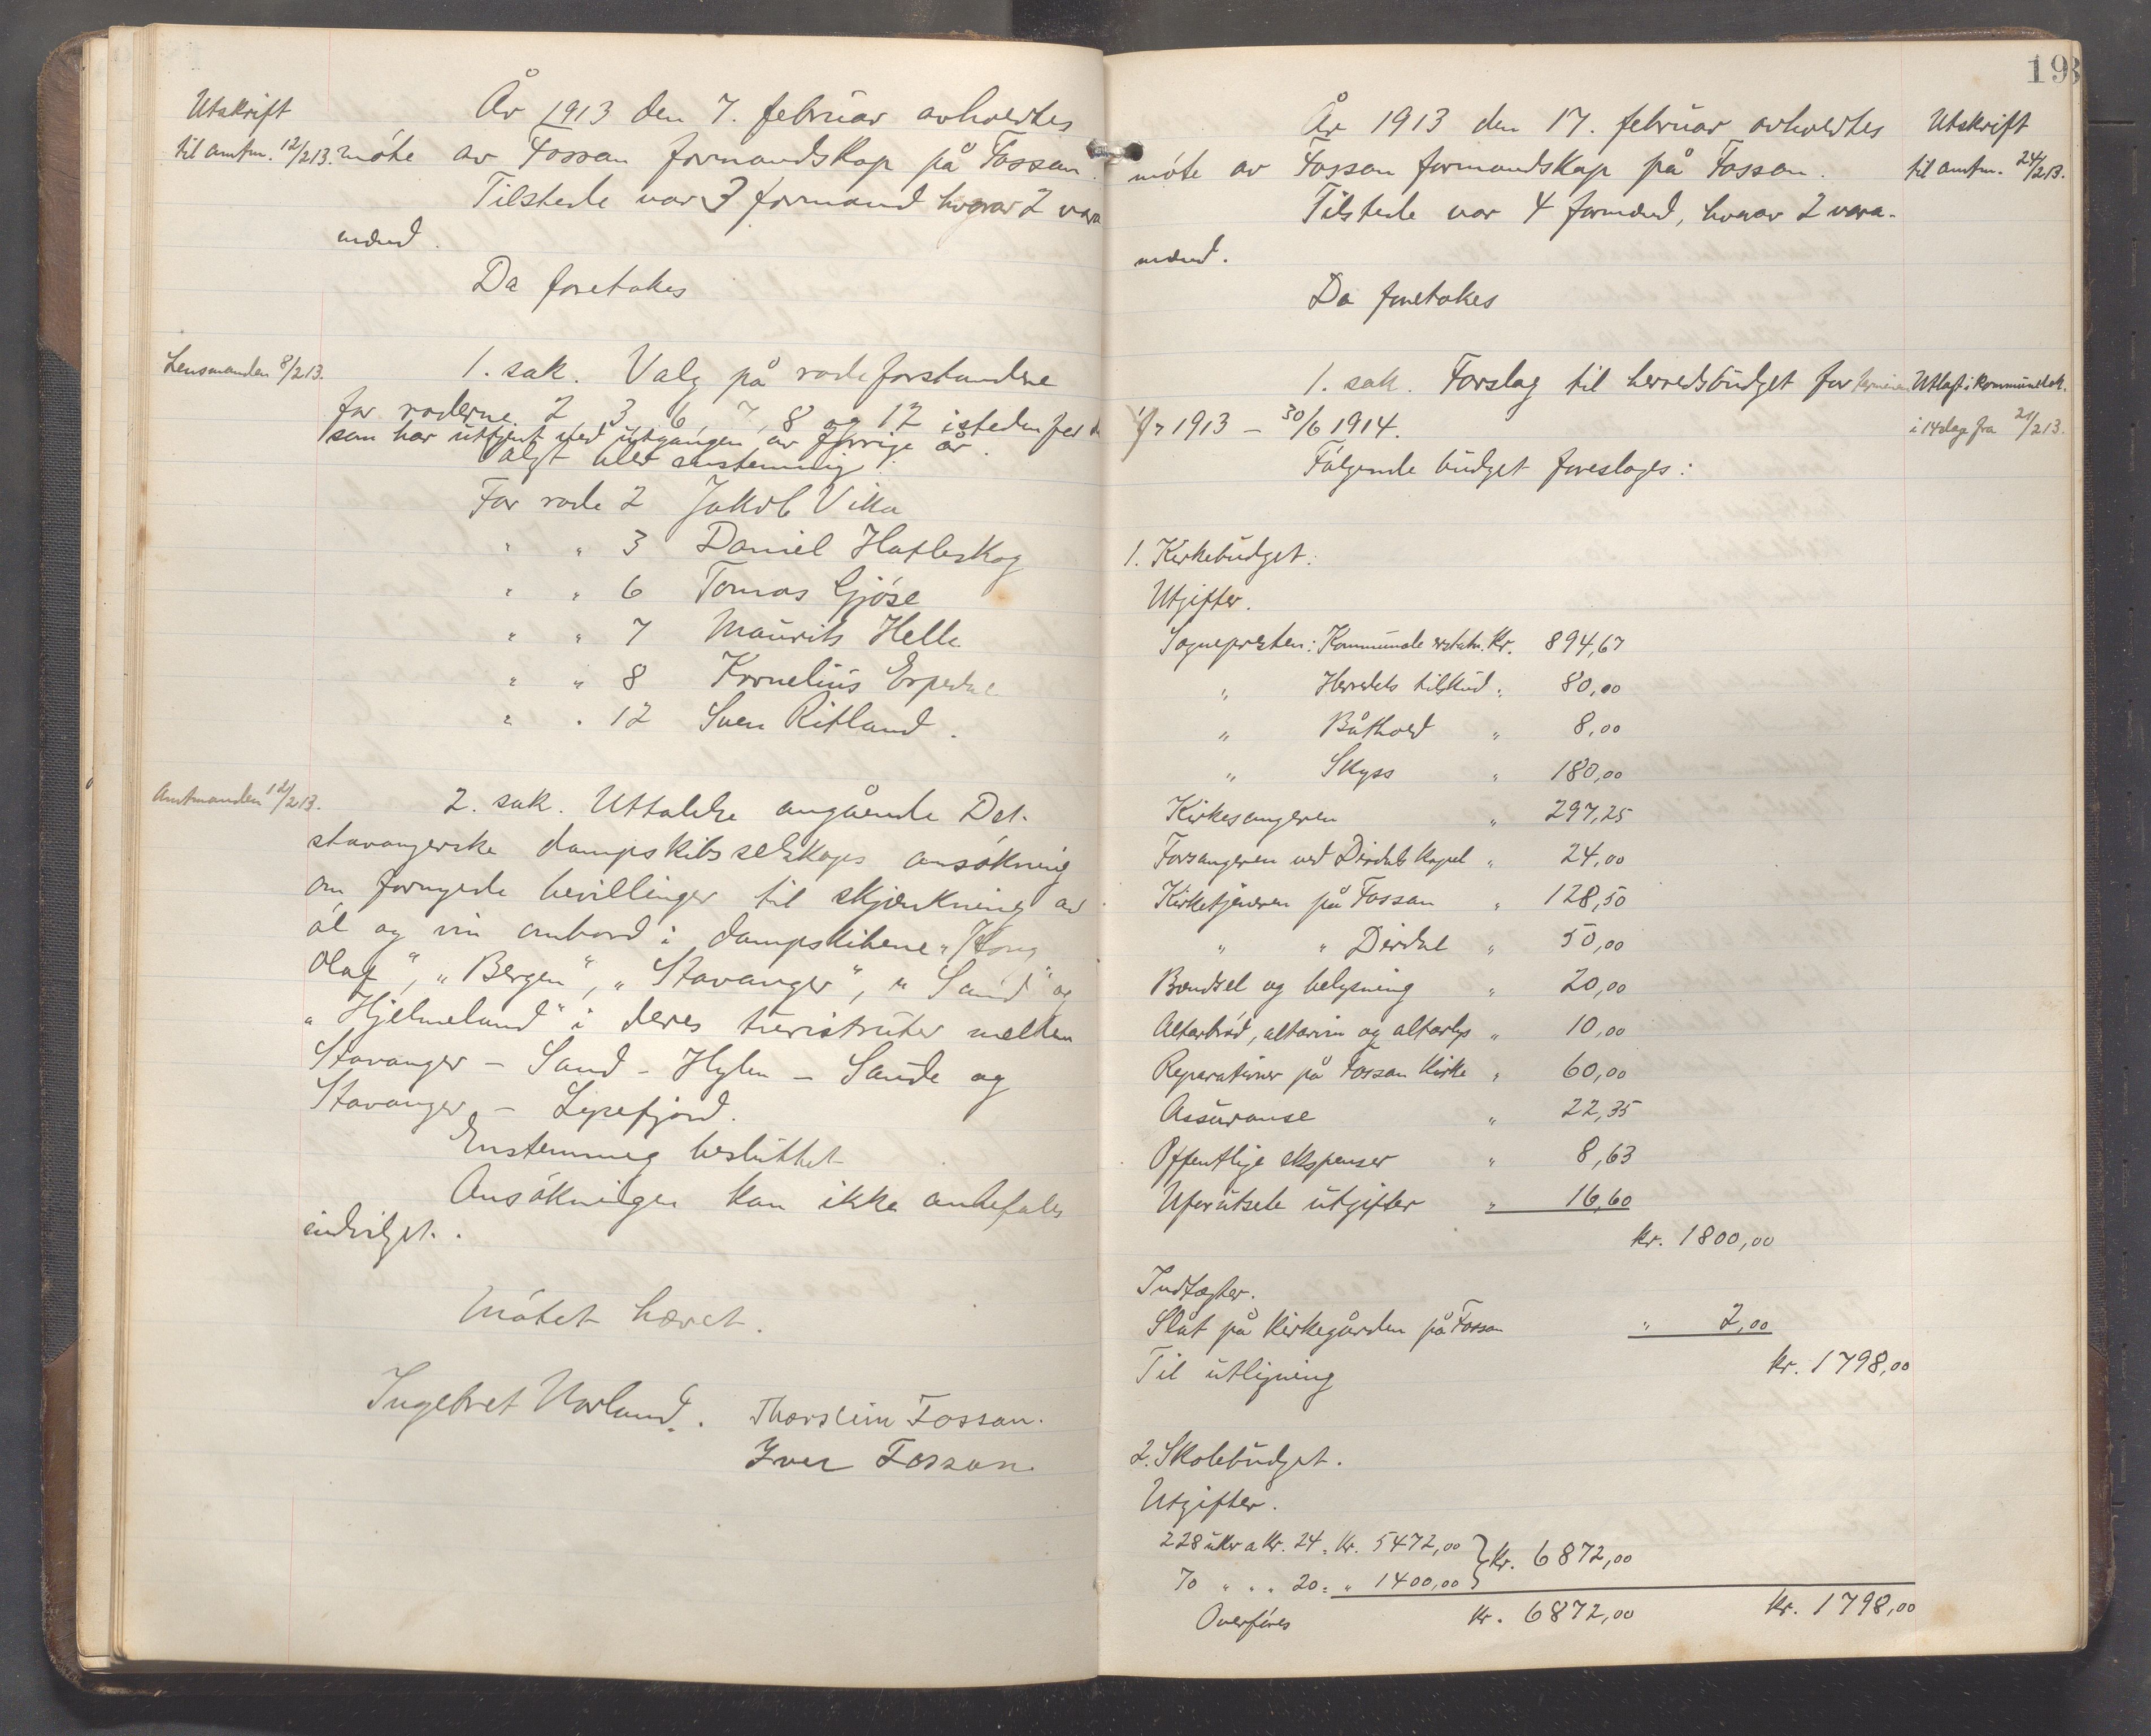 Utskrift
til amtm. 12/2 13.
År 1913 den 7. februar avholdtes
møte av Fossan formandskap på Fossan.
Tilstede var 3 formænd hvorav 2 vara
mænd.
Da foretokes
Lensmanden 8/2 13.
1. sak. Valg på rodeforstandere
for roderne 2 3 6 7, 8 og 12 istedenfor de
som har uttjent ved utgangen av forrige år.
Valgt blev enstemmig:
For rode 2 Jakob Vika
" " 3 Daniel Hatleskog
" " 6 Tomas Gjøse
" " 7 Maurits Helle
" " 8 Kornelius Espedal
" " 12 Sven Ritland.
Amtmanden 12/2 13.
2. sak. Uttalelse angående Det
stavangerske dampskibsselskaps ansøkning
om fornyede bevillinger til skjænkning av
øl og vin ombord i dampskibene "Kong
Olaf", "Bergen", "Stavanger", "Sand" og
"Hjelmeland" i deres turistruter mellem
Stavanger – Sand – Hylen – Saude og
Stavanger – Lysefjord.
Enstemmig besluttet
Ansøkningen kan ikke anbefales
indvilget.
Møtet hævet.
Ingebret Norland. Thorstein Fossan.
Iver Fossan.
193
År 1913 den 17. februar avholdtes
møte av Fossan formandskap på Fossan.
Tilstede var 4 formænd, hvorav 2 vara-
mænd.
Utskrift
til amtm. 24/2 13.
Da foretokes
1. sak. Forslag til herredsbudget for terminen
1/7 1913 – 30/6 1914.
Utlagt i kommunelok.
i 14 dage fra 21/2 13.
Følgende budget foreslages:
1. Kirkebudget.
Utgifter.
Sognepresten: Kommunale erstatn. Kr. 894,67
" Herredets tilskud " 80,00
" Båthold " 8,00
" Skyss " 180,00
Kirkesangeren " 297,25
Forsangeren ved Dirdal kapel " 24,00
Kirketjeneren på Fossan " 128,50
" " Dirdal " 50,00
Brændsel og belysning " 20,00
Alterbrød, altervin og alterlys " 10,00
Reparationer på Fossan kirke " 60,00
Assuranse " 22,35
Offentlige ekspenser " 8,63
Uforutsete utgifter " 16,60
kr. 1800,00
Indtægter.
Slåt på kirkegården på Fossan " 2,00
Til utligning kr. 1798,00
2. Skolebudget.
Utgifter.
228 uker a kr. 24 = Kr. 5472,00 } Kr. 6872,00
70 " " " 20 = " 1400,00
Overføres kr. 6872,00 kr. 1798,00